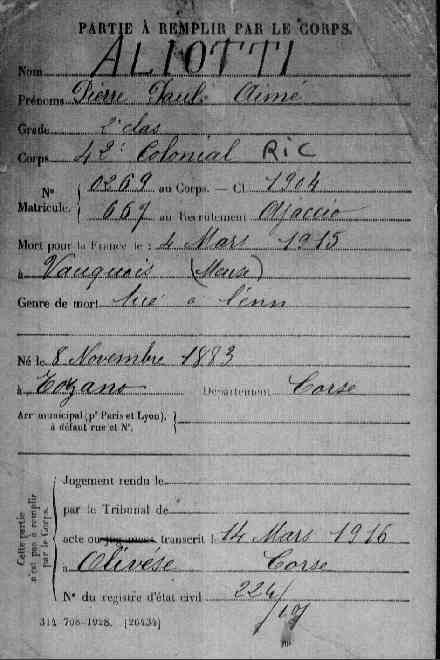 PARTIE À REMPLIR PAR LE CORPS.
Nom ALIOTTI
Prénoms Pierre Paul Aimé
Grade 2e clas
Corps 42e Colonial RIC
N° Matricule. { 0269 au Corps. — Cl 1904
667 au Recrutement Ajaccio
Mort pour la France le : 4 Mars 1915
à Vauquois (Meuse)
Genre de mort tué à l'enn
Né le 8 Novembre 1883
à Zozano Département Corse
Arr municipal (pr Paris et Lyon),
à défaut rue et N°. {
Cette partie
n'est pas à remplir
par le Corps.
Jugement rendu le
par le Tribunal de
acte ou jugement transcrit l 14 Mars 1916
à Olivèse Corse
N° du registre d'état civil 224/19
314 708-1928. [26434]